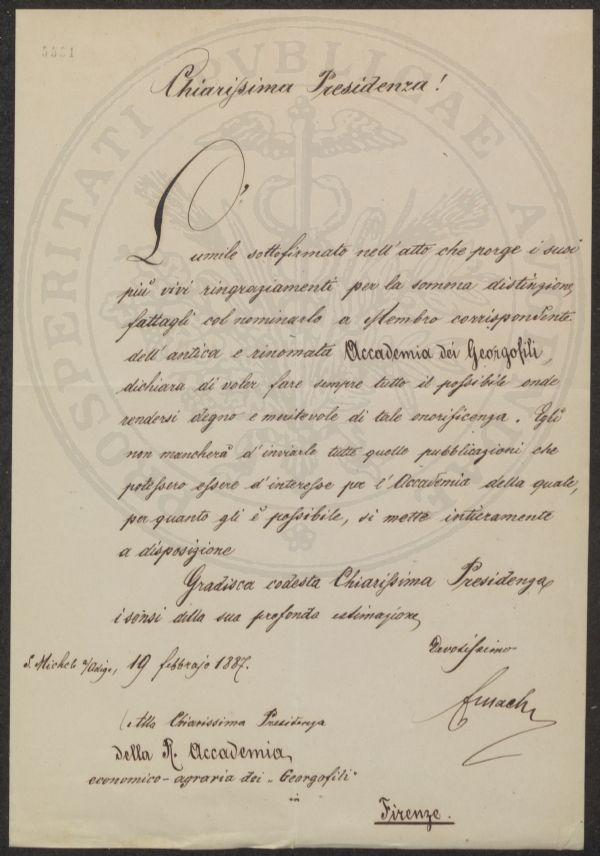 5531
Chiarissima Presidenza!
L'umile sottofirmato nell'atto che porge i suoi
più vivi ringraziamenti per la somma distinzione,
fattagli col nominarlo a Membro corrispondente
dell'antica e rinomata Accademia dei Georgofili,
dichiara di voler fare sempre tutto il possibile onde
rendersi degno e meritevole di tale onorificenza. Egli
non mancherà d'inviarle tutte quelle pubblicazioni che
potessero essere d'interesse per l'Accademia della quale,
per quanto gli è possibile, si mette intieramente
a disposizione
Gradisca codesta Chiarissima Presidenza,
i sensi della sua profonda estimazione,
Devotissimo
S. Michele a/Adige, 19 febbrajo 1887.
Alla Chiarissima Presidenza
della R. Accademia,
economico-agraria dei „Georgofili"
in
Firenze.
PROSPERITATI PVBLICAE